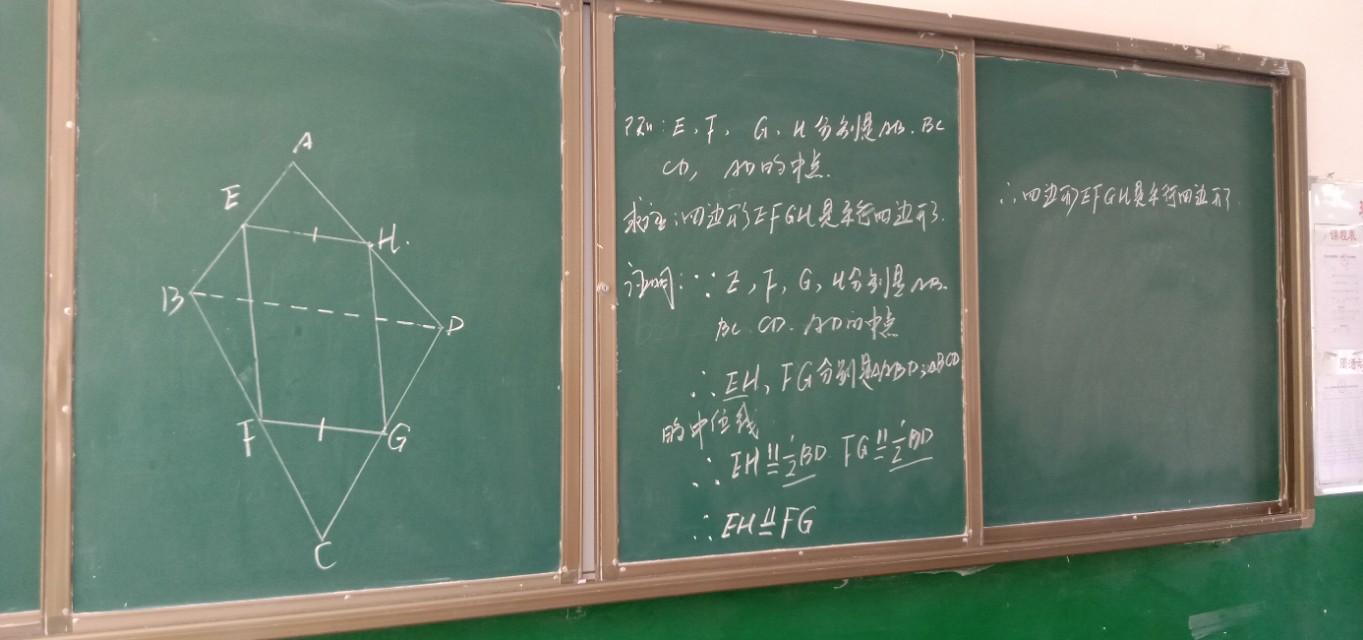 A
E
H.
B
D
F
G
C
已知:E,F, G、H分别是AB、BC
CD, AD的中点.
求证:四边形EFGH是平行四边形.
证明:∵E,F,G,H分别是AB、
BC、CD、AD的中点
∴EH,FG分别是△ABD,△BCD
的中位线
∴EH∥=1/2BD FG∥=1/2BD
∴EH∥=FG
∴四边形EFGH是平行四边形.
课程表